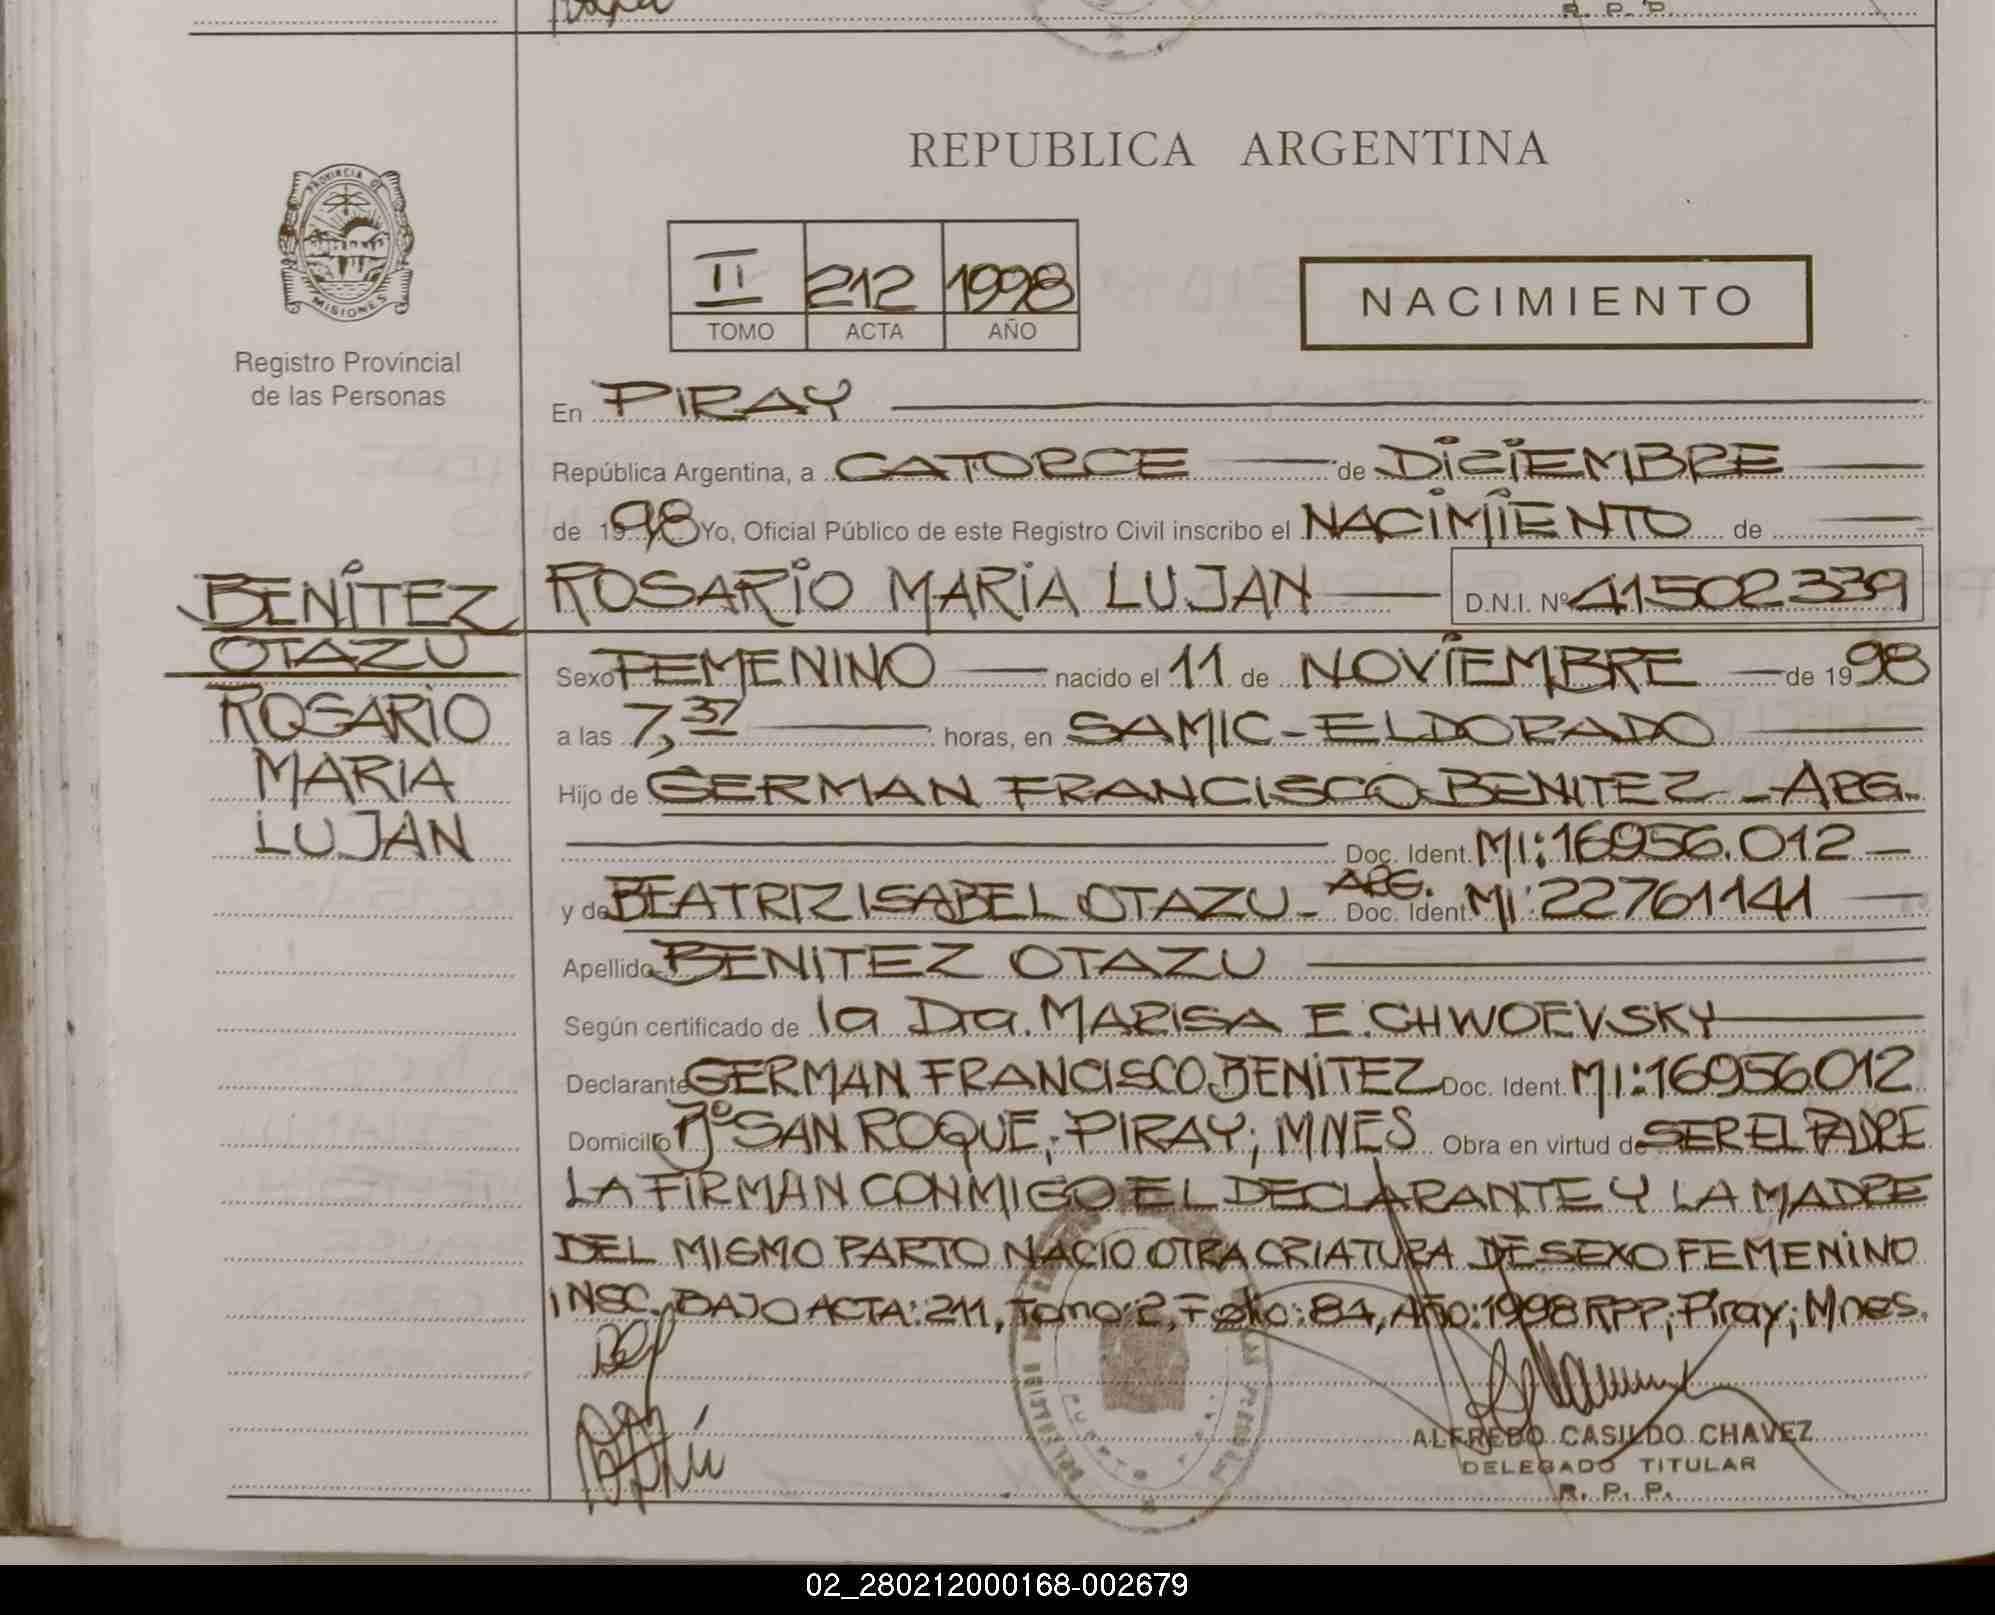 R. P. P.
REPUBLICA ARGENTINA
PROVINCIA DE
MISIONES
Registro Provincial
de las Personas
II 212 1998
TOMO ACTA AÑO
NACIMIENTO
En PIRAY
República Argentina, a CATORCE de DICIEMBRE
de 1998 Yo, Oficial Público de este Registro Civil inscribo el NACIMIENTO de
BENÍTEZ
OTAZU
ROSARIO
MARIA
LUJAN
ROSARIO MARIA LUJAN D.N.I. Nº 41502339
Sexo FEMENINO nacido el 11 de NOVIEMBRE de 1998
a las 7,37 horas, en SAMIC - ELDORADO
Hijo de GERMAN FRANCISCO BENITEZ - ARG.
Doc. Ident. MI: 16956.012
y de BEATRIZ ISABEL OTAZU - ARG. Doc. Ident. MI: 22761141
Apellido BENITEZ OTAZU
Según certificado de la Dra. MARISA E. CHWOEVSKY
Declarante GERMAN FRANCISCO BENITEZ Doc. Ident. MI: 16956012
Domicilio Bº SAN ROQUE; PIRAY; MNES Obra en virtud de SER EL PADRE
LA FIRMAN CONMIGO EL DECLARANTE Y LA MADRE
DEL MISMO PARTO NACIO OTRA CRIATURA DE SEXO FEMENINO
INSC. BAJO ACTA: 211, Tomo: 2, Folio: 84, Año: 1998 RPP; Piray; Mnes.
ALFREDO CASILDO CHAVEZ
DELEGADO TITULAR
R. P. P.
02_280212000168-002679